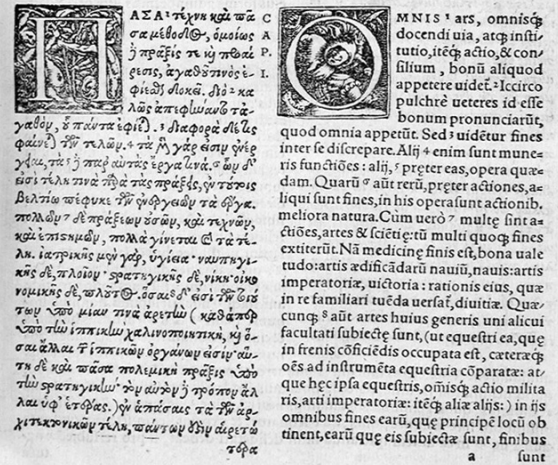 ΠΑΣΑ ¹ τέχνη καὶ πᾶ
σα μέθοδος, ὁμοίως
ἢ πρᾶξίς τε καὶ προαί
ρεσις, ἀγαθοῦ τινὸς ἐ-
φίεσθαι δοκεῖ. διὸ ² κα
λῶς ἀπεφήναντο τἀ-
γαθὸν, οὗ πάντα ἐφίεται. ³ διαφορὰ δέ τις
φαίνεται τῶν τελῶν. ⁴ τὰ μὲν γάρ εἰσιν ἐνέρ
γειαι, τὰ ⁵ δὲ παρ' αὐτὰς ἔργα τινά. ⁶ ὧν δ'
εἰσὶ τέλη τινὰ παρὰ τὰς πράξεις, ἐν τούτοις
βελτίω πέφυκε τῶν ἐνεργειῶν τὰ ἔργα.
πολλῶν ⁷ δὲ πράξεων οὐσῶν, καὶ τεχνῶν,
καὶ ἐπιστημῶν, πολλὰ γίνεται καὶ τὰ τέ-
λη. ἰατρικῆς μὲν γὰρ, ὑγίεια· ναυπηγι-
κῆς δὲ, πλοῖον· στρατηγικῆς δὲ, νίκη· οἰκο
νομικῆς δὲ, πλοῦτος. ὅσαι ⁸ δ' εἰσὶ τῶν τοιού
των ὑπὸ μίαν τινὰ ἀρετὴν (καθάπερ
ὑπὸ τὴν ἱππικὴν χαλινοποιητικὴ, καὶ ὅ-
σαι ἄλλαι τῶν ἱππικῶν ὀργάνων εἰσὶν· αὕ-
τη δὲ καὶ πᾶσα πολεμικὴ πρᾶξις ὑπὸ
τὴν στρατηγικὴν· τὸν αὐτὸν δὴ τρόπον ἄλ
λαι ὑφ' ἑτέρας.) ἐν ἁπάσαις τὰ τῶν ἀρ-
χιτεκτονικῶν τέλη, πάντων ἐστὶν αἱρετώ
τερα
C
A
P
I.
OMNIS ¹ ars, omnisq́;
docendi uia, atq; insti
tutio, itéq; actio, & con
silium, bonū aliquod
appetere uidet̃. ² Iccirco
pulchrè ueteres id esse
bonum pronunciarūt,
quod omnia appetūt. Sed ³ uidētur fines
inter se discrepare. Alij ⁴ enim sunt mune-
ris functiões: alij, ⁵ pręter eas, opera quæ-
dam. Quarū ⁶ aūt rerū, pręter actiones, a-
liqui sunt fines, in his opera sunt actionib.
meliora natura. Cùm uerò ⁷ multę sint a-
ctiões, artes & sciētię: tū multi quoq; fines
extiterūt. Nā medicinę finis est, bona uale
tudo: artis ædificādarū nauiū, nauis: artis
imperatoriæ, uictoria: rationis eius, quæ
in re familiari tuēda uersat̃, diuitiæ. Quæ
cunq; ⁸ aūt artes huius generis uni alicui
facultati subiectę sunt, (ut equestri ea, quę
in frenis cōficiēdis occupata est, cæteræq́;
oēs ad instrumēta equestria cōparatæ: at-
que hęc ipsa equestris, omīsq́; actio milita
ris, arti imperatoriæ: itéq; aliæ alijs:) in ijs
omnibus fines earū, quę principē locū ob
tinent, earū quę eis subiectæ sunt, finibus
a sunt